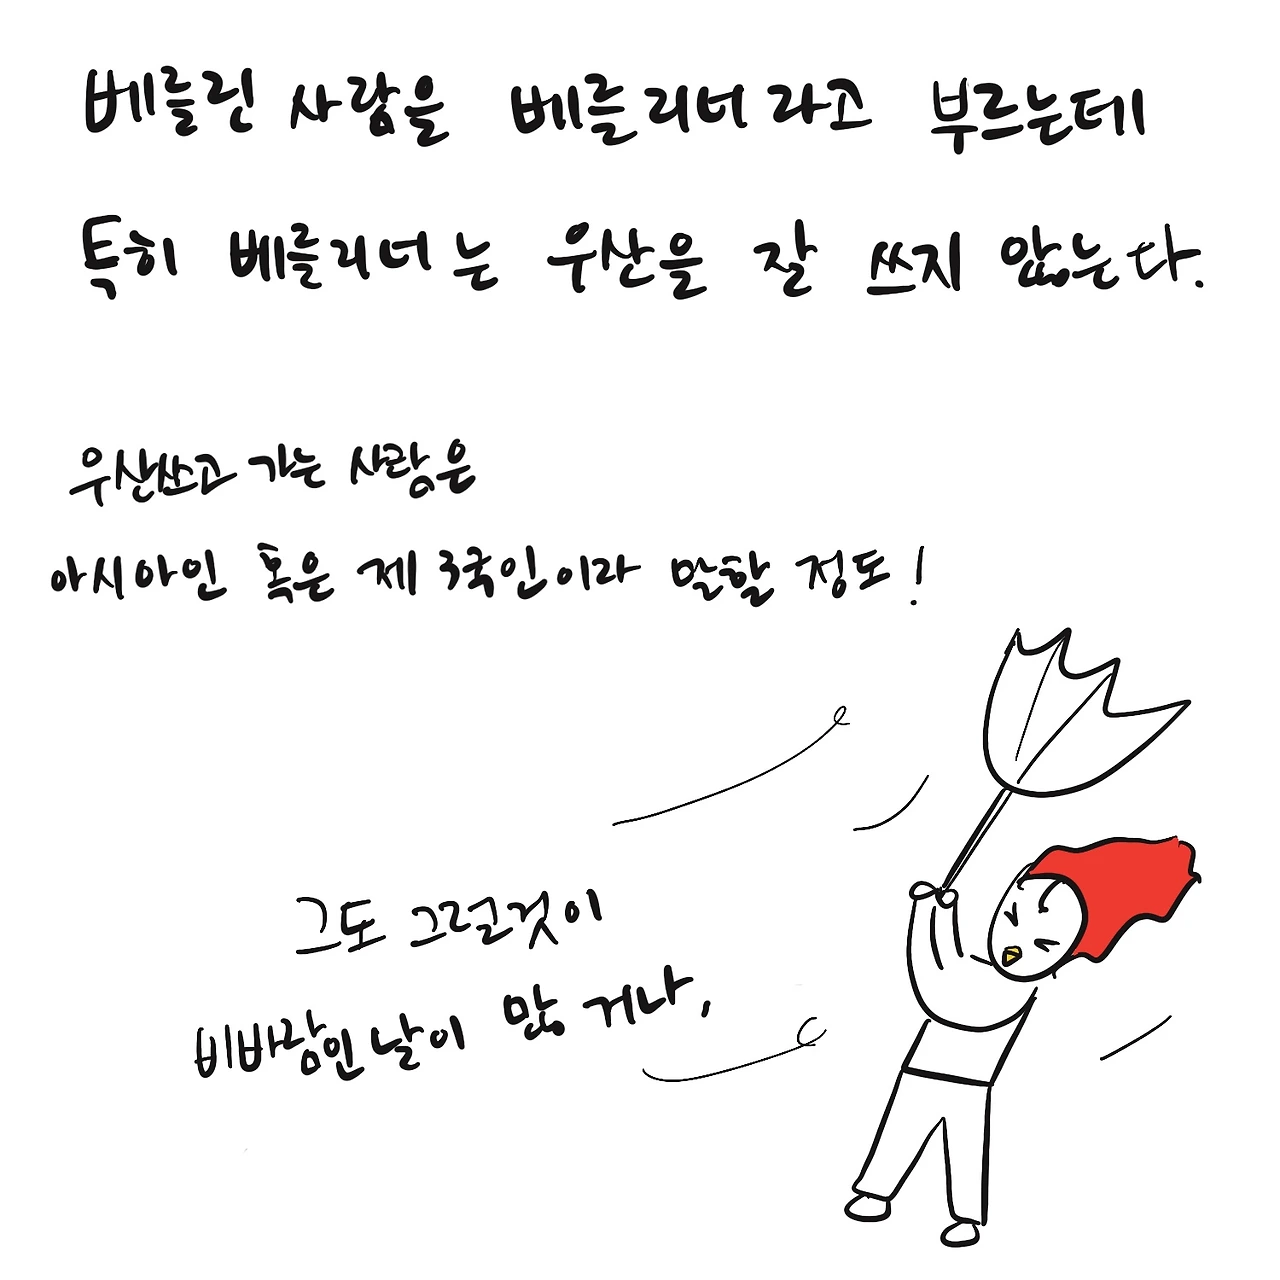 베를린 사람을 베를리너라고 부르는데
특히 베를리너는 우산을 잘 쓰지 않는다.
우산쓰고 가는 사람은
아시아인 혹은 제 3국인이라 말할 정도!
그도 그럴것이
비바람인 날이 많거나,